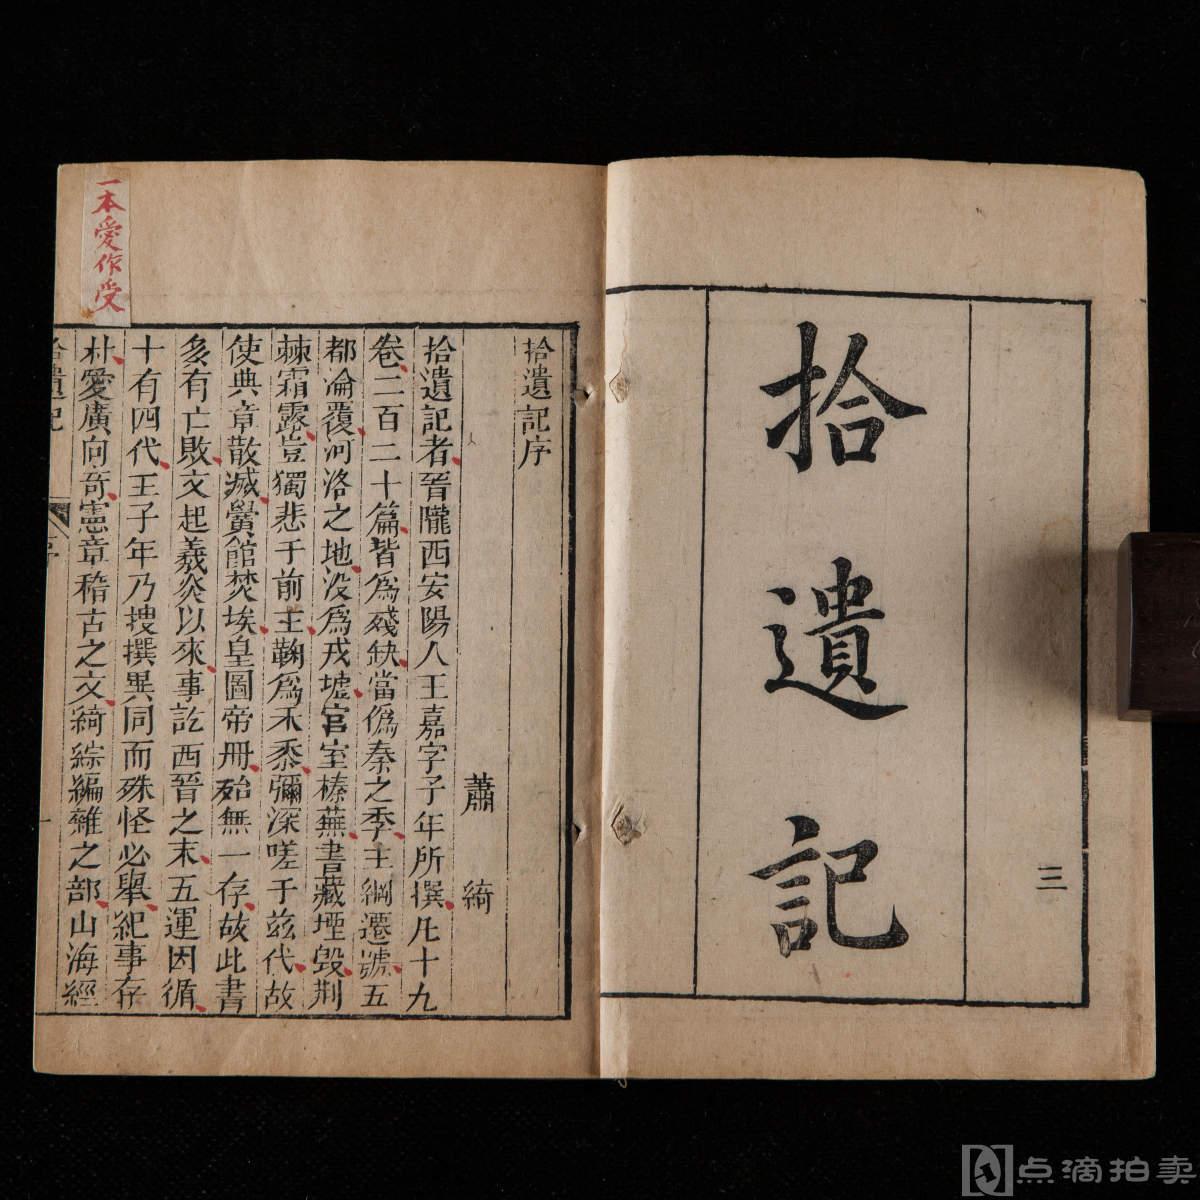 拾遺記
三
拾遺記序
蕭綺
拾遺記者晉隴西安陽人王嘉字子年所撰凡十九
卷二百二十篇皆爲殘缺當僞秦之季王綱遷號五
都淪覆河洛之地没爲戎墟宮室榛蕪書藏堙毁荆
棘霜露豈獨悲于前王鞠爲禾黍彌深嗟于兹代故
使典章散滅黌館焚埃皇圖帝册殆無一存故此書
多有亡敗文起羲炎以來事訖西晉之末五運因循
十有四代王子年乃搜撰異同而殊怪必舉紀事存
朴愛廣向奇憲章稽古之文綺綜編雜之部山海經
拾遺記
序
一本愛作受
点滴拍卖